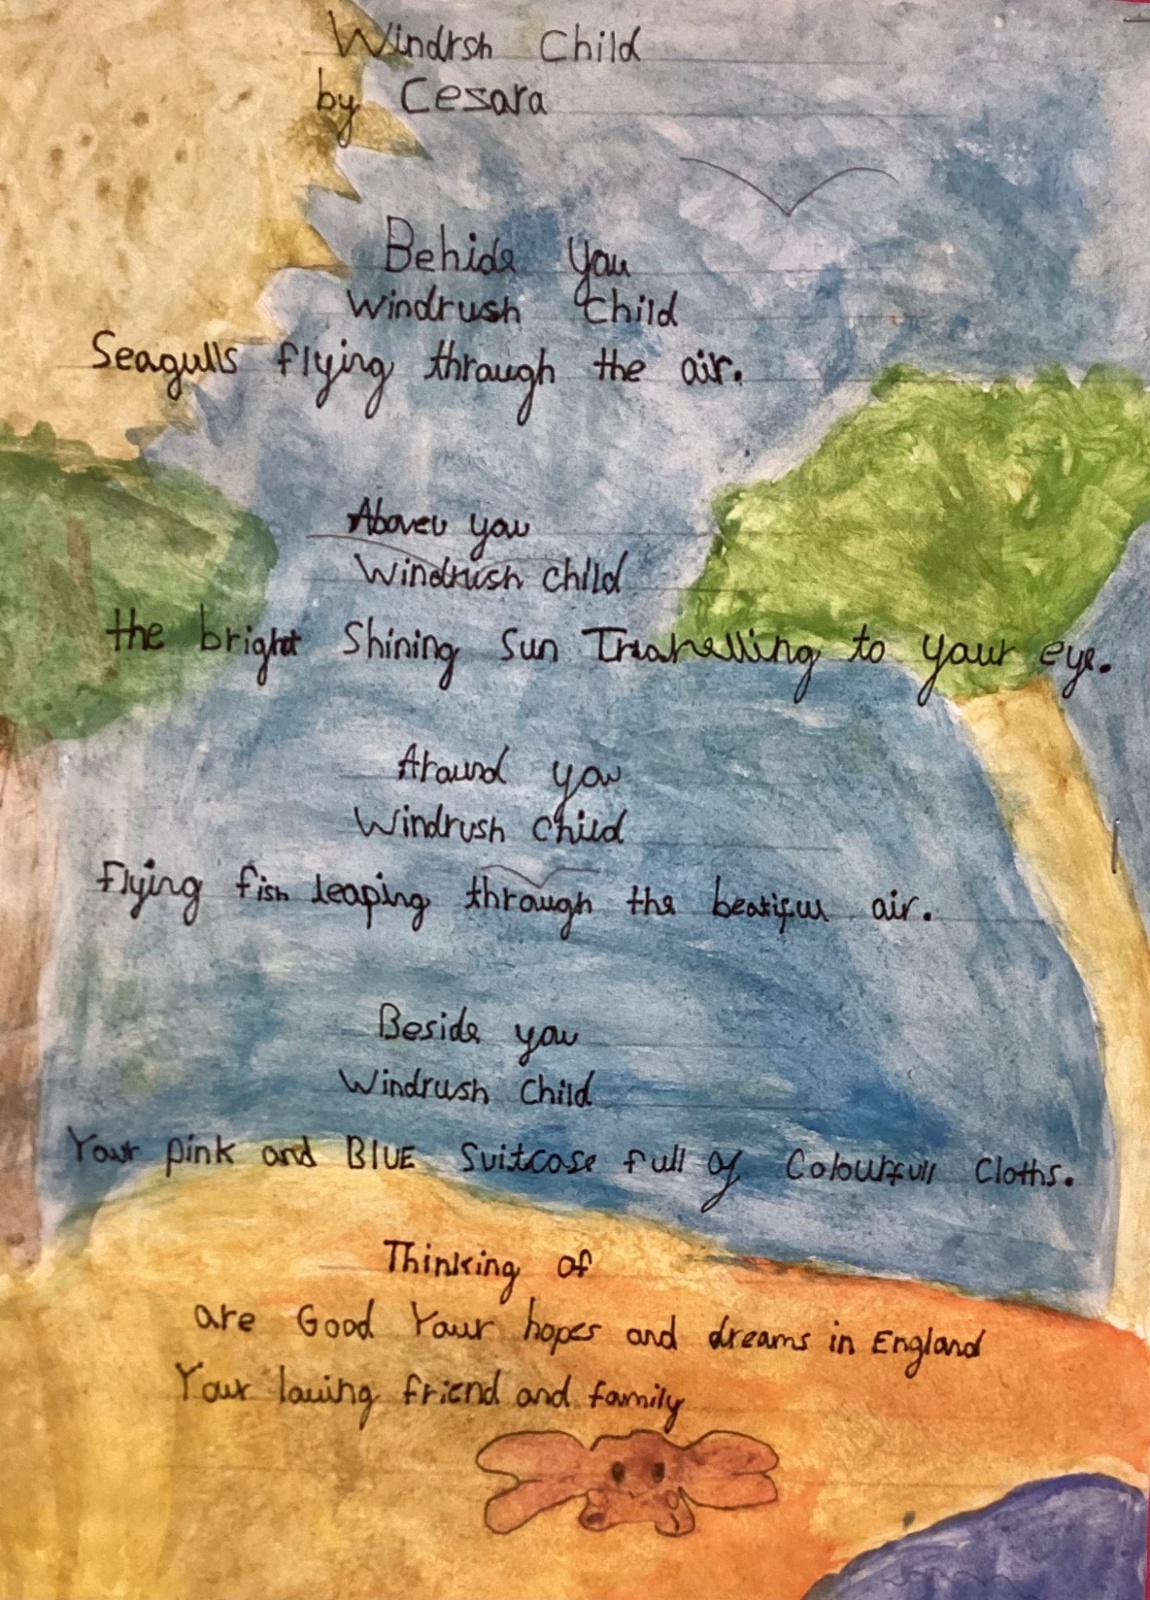 Windrsh Child
by Cesara
Behide you
Windrush Child
Seagulls flying through the air.
Above you
Windrush child
the bright Shining Sun to your eye.
Around you
Windrush child
Flying fish leaping through the air.
Beside you
Windrush Child
Your pink and BLUE Suitcase full of Colourfull Cloths.
Thinking of
are Good Your hopes and dreams in England
Your loving friend and family